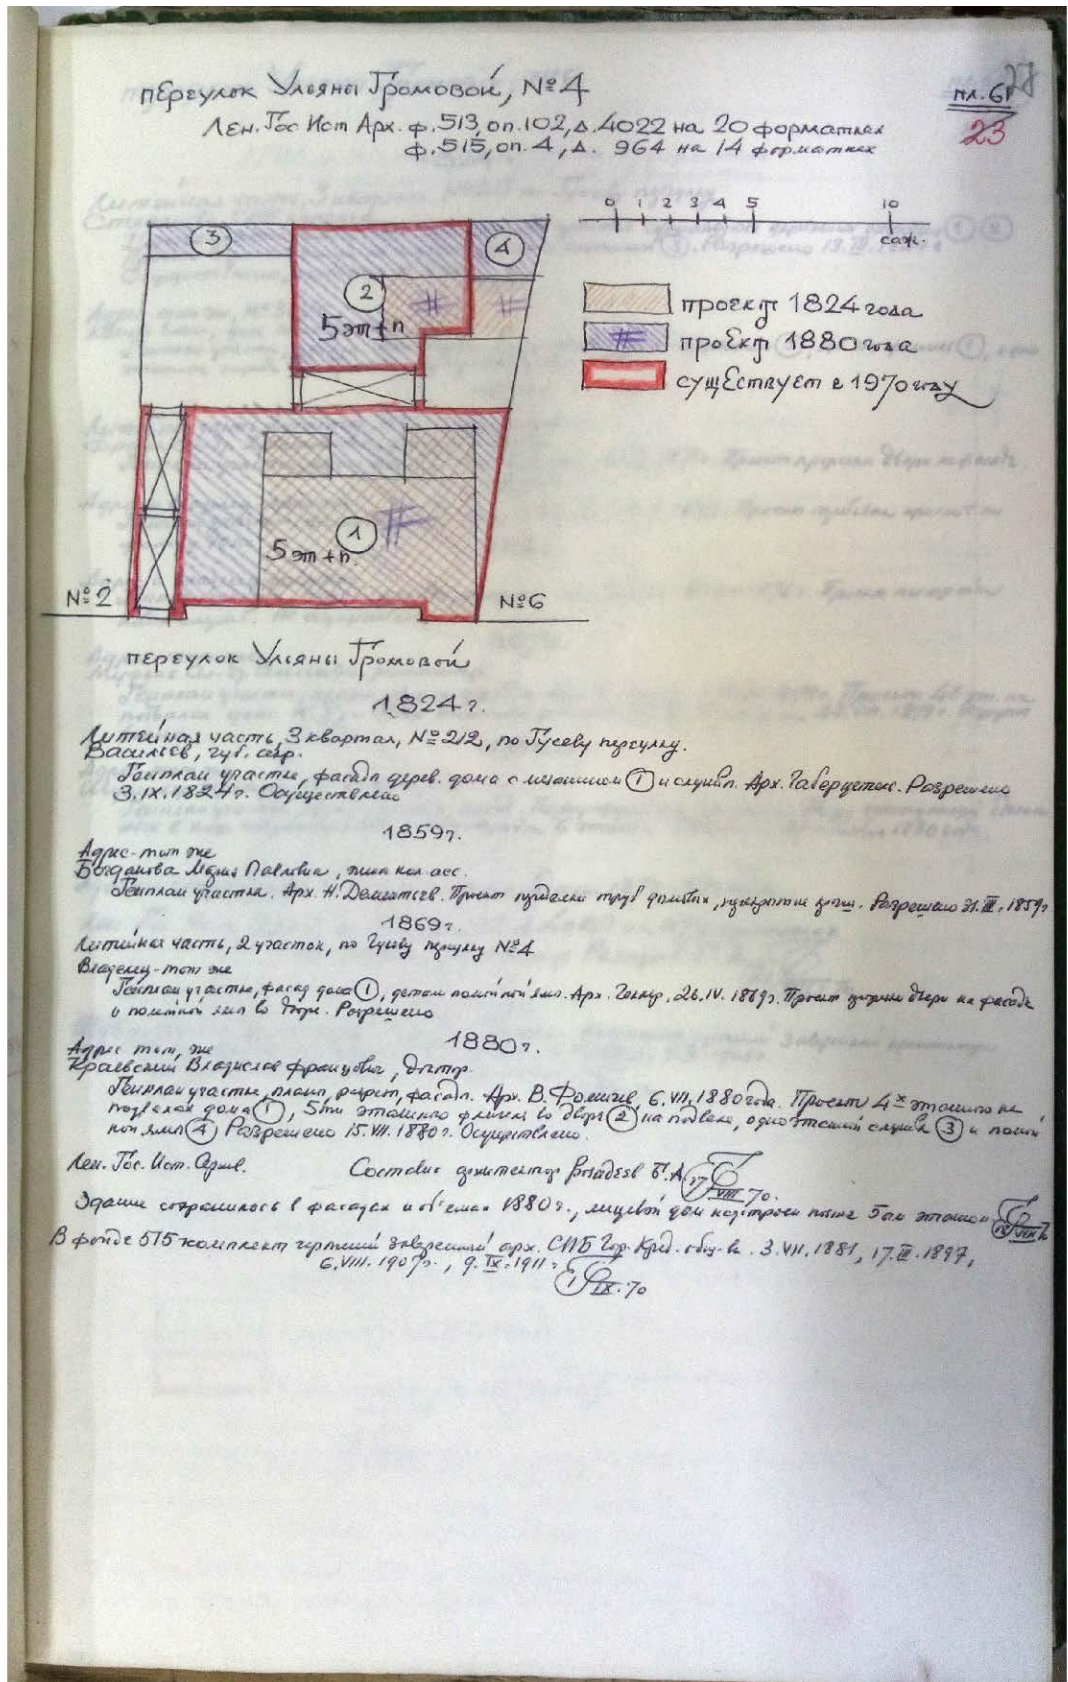 переулок Ульяны Громовой, №4
пл. 61
23
Лен. Гос Ист Арх. ф. 513, оп. 102, д. 4022 на 20 форматках
ф. 515, оп. 4, д. 964 на 14 форматках
0 1 2 3 4 5 10
саж.
3
4
2
5 эт + п
проект 1824 года
проект 1880 года
существует в 1970 году
1
5 эт + п.
№2
№6
переулок Ульяны Громовой
1824 г.
Литейная часть, 3 квартал, № 212, по Гусеву переулку.
Васильев, губ. секр.
Генплан участка, фасады дерев. дома с мезонином 1 и служб. Арх. Разрешено
3.IX.1824 г. Осуществлено
1859 г.
Адрес - тот же
Богданова Мария Павловна, жена кол. асс.
Генплан участка. Арх. Н. Дементьев. Проект труб дымовых, Разрешено 31.III.1859 г
1869 г.
Литейная часть, 2 участок, по Гусеву переулку №4
Владелец - тот же
Генплан участка, фасад дома 1, детали помойной ямы. Арх. 26.IV.1869 г. Проект двери на фасаде
и помойной ямы во дворе. Разрешено
1880 г.
Адрес тот же
Краевский Владислав Францович, доктор
Генплан участка, планы, разрез, фасады. Арх. В. Фомичев, 6.VII.1880 года. Проект 4х этажного на
подвалах дома 1, 5ти этажного флигеля во дворе 2 на подвале, одноэтажной службы 3 и помой
ной ямы 4 Разрешено 15.VII.1880 г. Осуществлено.
Лен. Гос. Ист. Архив. Составил архитектор Б. А. 17 VIII 70.
Здание сохранилось в фасадах и объемах 1880 г., лицевой дом надстроен 5ым этажом
В фонде 515 комплект чертежей заверенный арх. СПБ Гор. Кред. общ-ва. 3.VII.1881, 17.III.1897,
6.VIII.1907 г., 9.IX.1911 г.
1 IX. 70